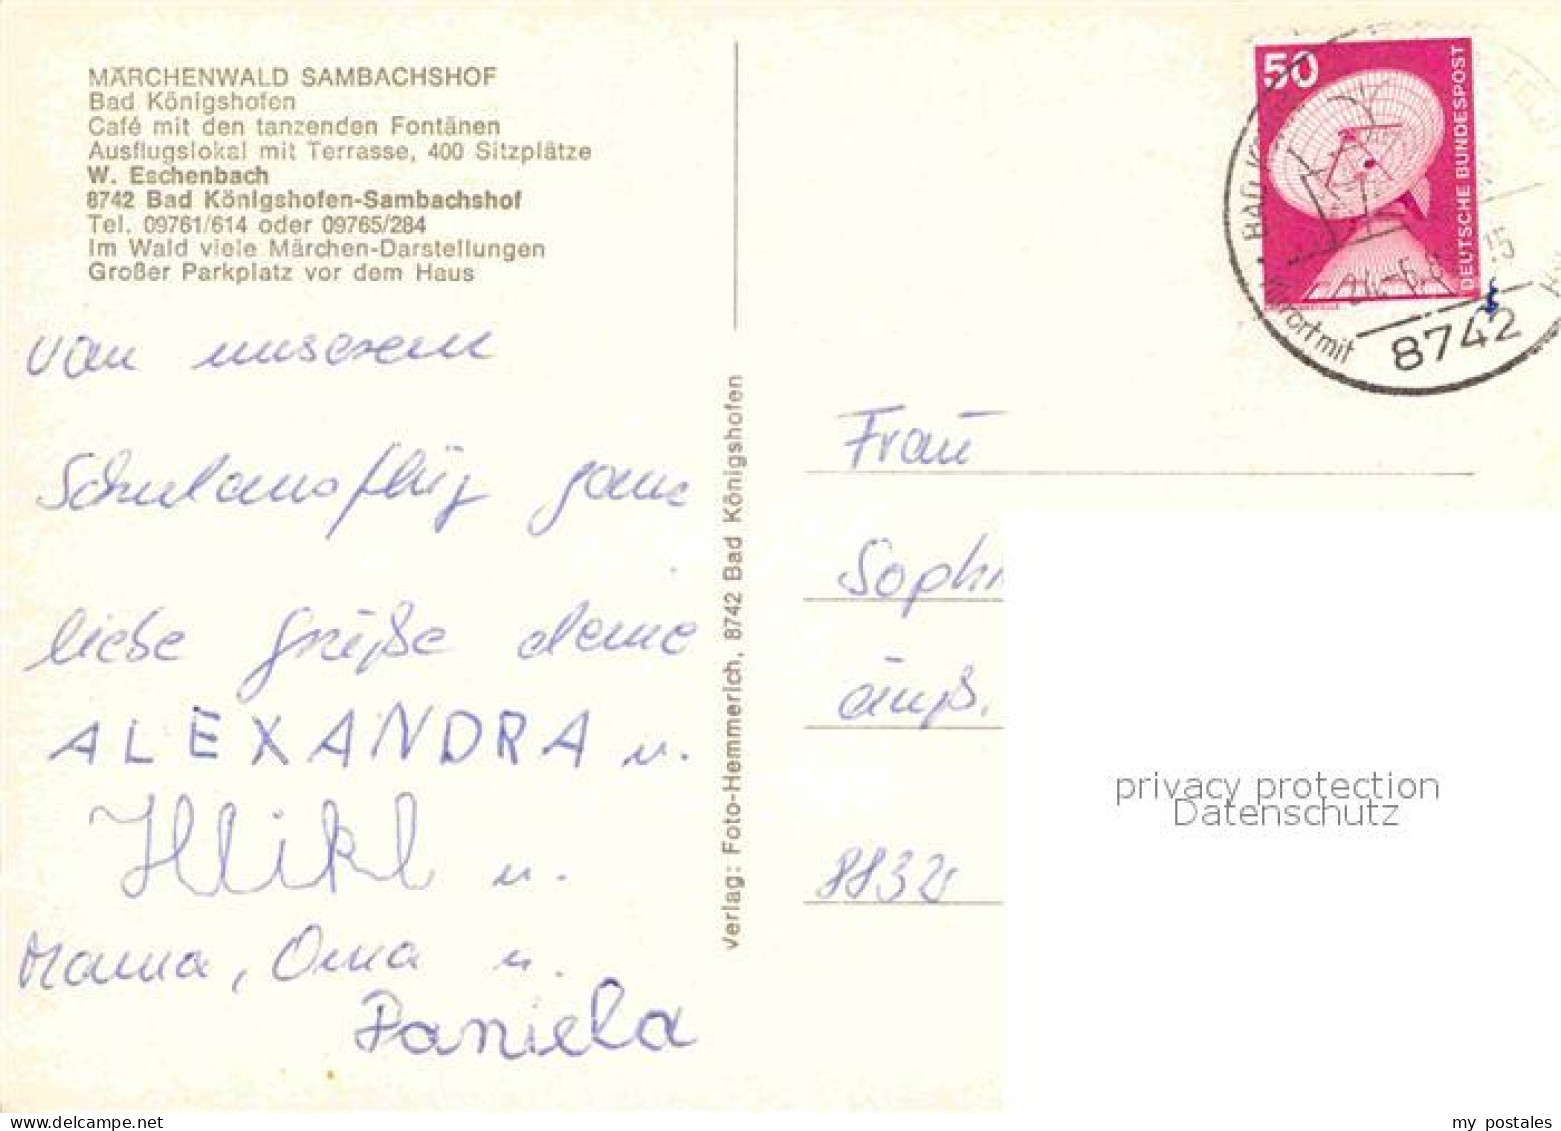 MÄRCHENWALD SAMBACHSHOF
Bad Königshofen
Café mit den tanzenden Fontänen
Ausflugslokal mit Terrasse, 400 Sitzplätze
W. Eschenbach
8742 Bad Königshofen-Sambachshof
Tel. 09761/614 oder 09765/284
Im Wald viele Märchen-Darstellungen
Großer Parkplatz vor dem Haus
von unserem
Schulausflug ganz
liebe Grüße deine
ALEXANDRA u.
u.
Mama, Oma u.
Daniela
Verlag: Foto-Hemmerich, 8742 Bad Königshofen
50
DEUTSCHE BUNDESPOST
BAD
15
ort mit
8742
Frau
Soph
äuß.
8832
privacy protection
Datenschutz
my postales